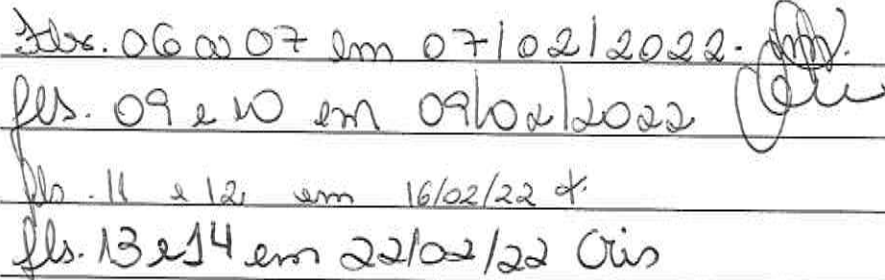 Fls. 06 a 07 em 07/02/2022.
fls. 09 e 10 em 09/02/2022
fls. 11 e 12 em 16/02/22
fls. 13 e 14 em 22/02/22 Cris